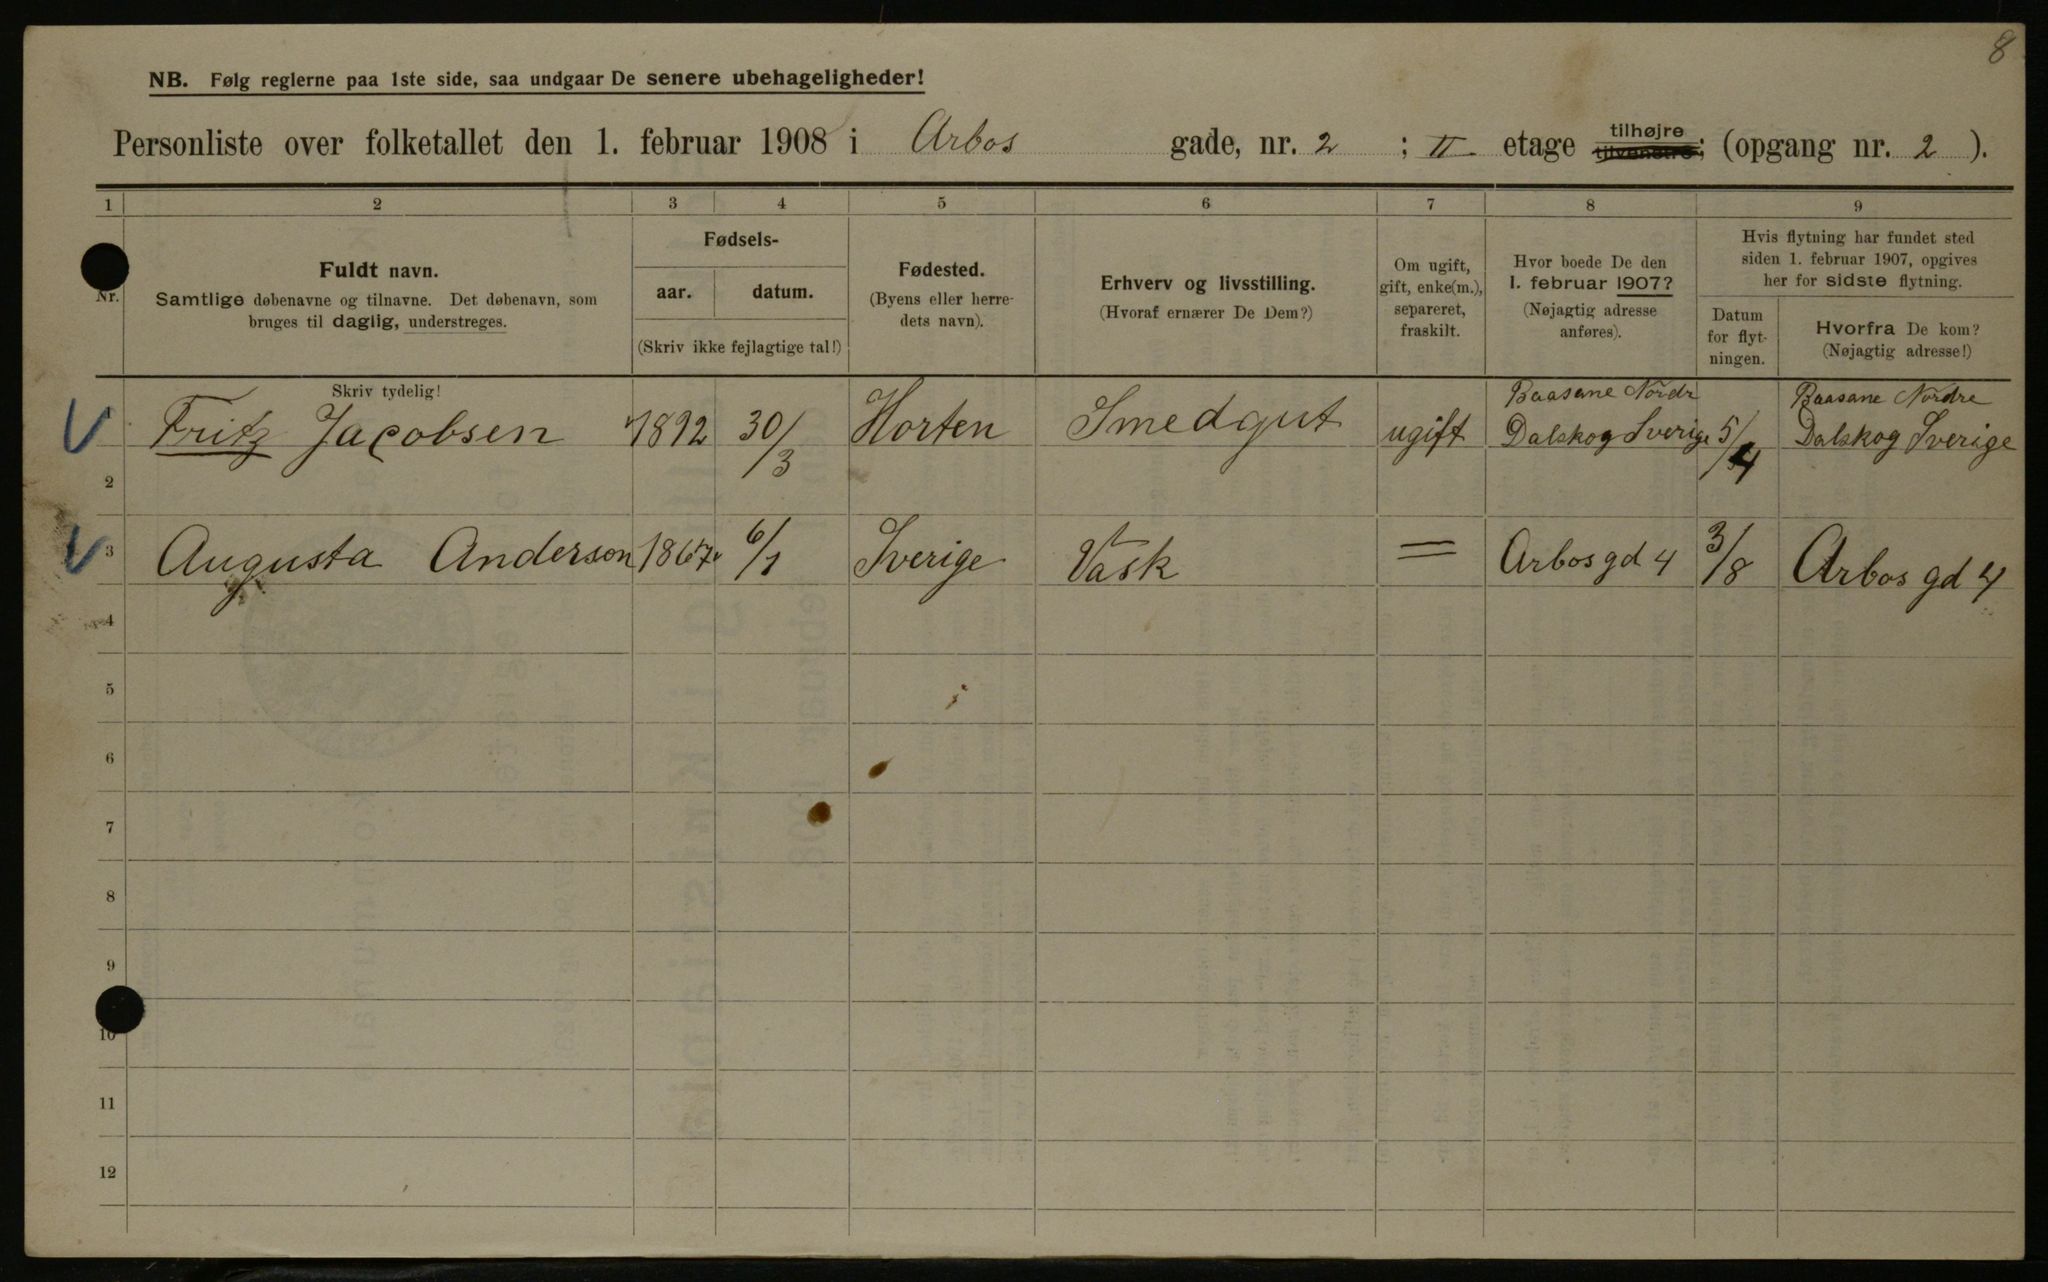 8
NB. Følg reglerne paa 1ste side, saa undgaar De senere ubehageligheder!
Personliste over folketallet den 1. februar 1908 i Arbos gade, nr. 2 ; II etage tilhøjre tilvenstre; (opgang nr. 2 ).
1 2 3 4 5 6 7 8 9
Nr.
Fuldt navn.
Samtlige døbenavne og tilnavne. Det døbenavn, som
bruges til daglig, understreges.
Fødsels-
aar. datum.
(Skriv ikke fejlagtige tal!)
Fødested.
(Byens eller herre-
dets navn).
Erhverv og livsstilling.
(Hvoraf ernærer De Dem?)
Om ugift,
gift, enke(m.),
separeret,
fraskilt.
Hvor boede De den
1. februar 1907?
(Nøjagtig adresse
anføres).
Hvis flytning har fundet sted
siden 1. februar 1907, opgives
her for sidste flytning.
Datum
for flyt-
ningen.
Hvorfra De kom?
(Nøjagtig adresse!)
Skriv tydelig!
Baasane Nordr Baasane Nordre
1 Fritz Jacobsen 1892 30/3 Horten Smedgut ugift Dalskog Sverige 5/4 Dalskog Sverige
2
3 Augusta Anderson 1867 6/1 Sverige Vask = Arbos gd 4 3/8 Arbos gd 4
4
5
6
7
8
9
10
11
12